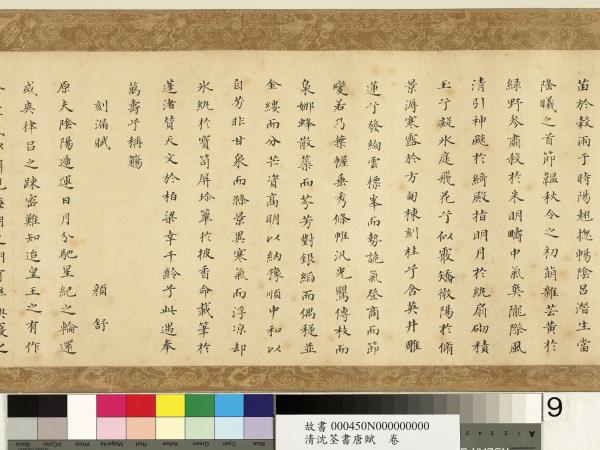 苗於穀雨于時陽趐揔暢陰呂潛生當
隆曦之首節韞秋令之初萌雜芸黄於
緑野參肅殺於朱明疇中氣奥隴際風
清引神飈於綺殿指明月於紈扇砌積
玉兮凝氷庭飛花兮似霰矯微陽於脩
景溽寒露於方甸棟刻桂兮含英井雕
蓮兮發絢雲標峯而勢詭氣登商而節
變若乃葉幄垂秀條帷汎光鸎傳枝而
裊娜蜂散蘂而芬芳對銀縚而偶穟並
金縷而分芒資高明以納豫順中和以
自芳非甘泉而滌景異寒氣而浮涼却
氷紈於寶笥屏珍簟於披香命載筆於
蓬渚賛天文於柏梁幸千齡兮此遇奉
萬壽兮稱觴
刻漏賦
顔舒
原夫陰陽遞運日月分馳星紀之輪還
或奥律吕之踈密難知迨皇王之有作
9
故書 000450N000000000
清沈荃書唐賦 卷
Blue
Cyan
Green
Yellow
Red
Magenta
White
3/Color
Black
A